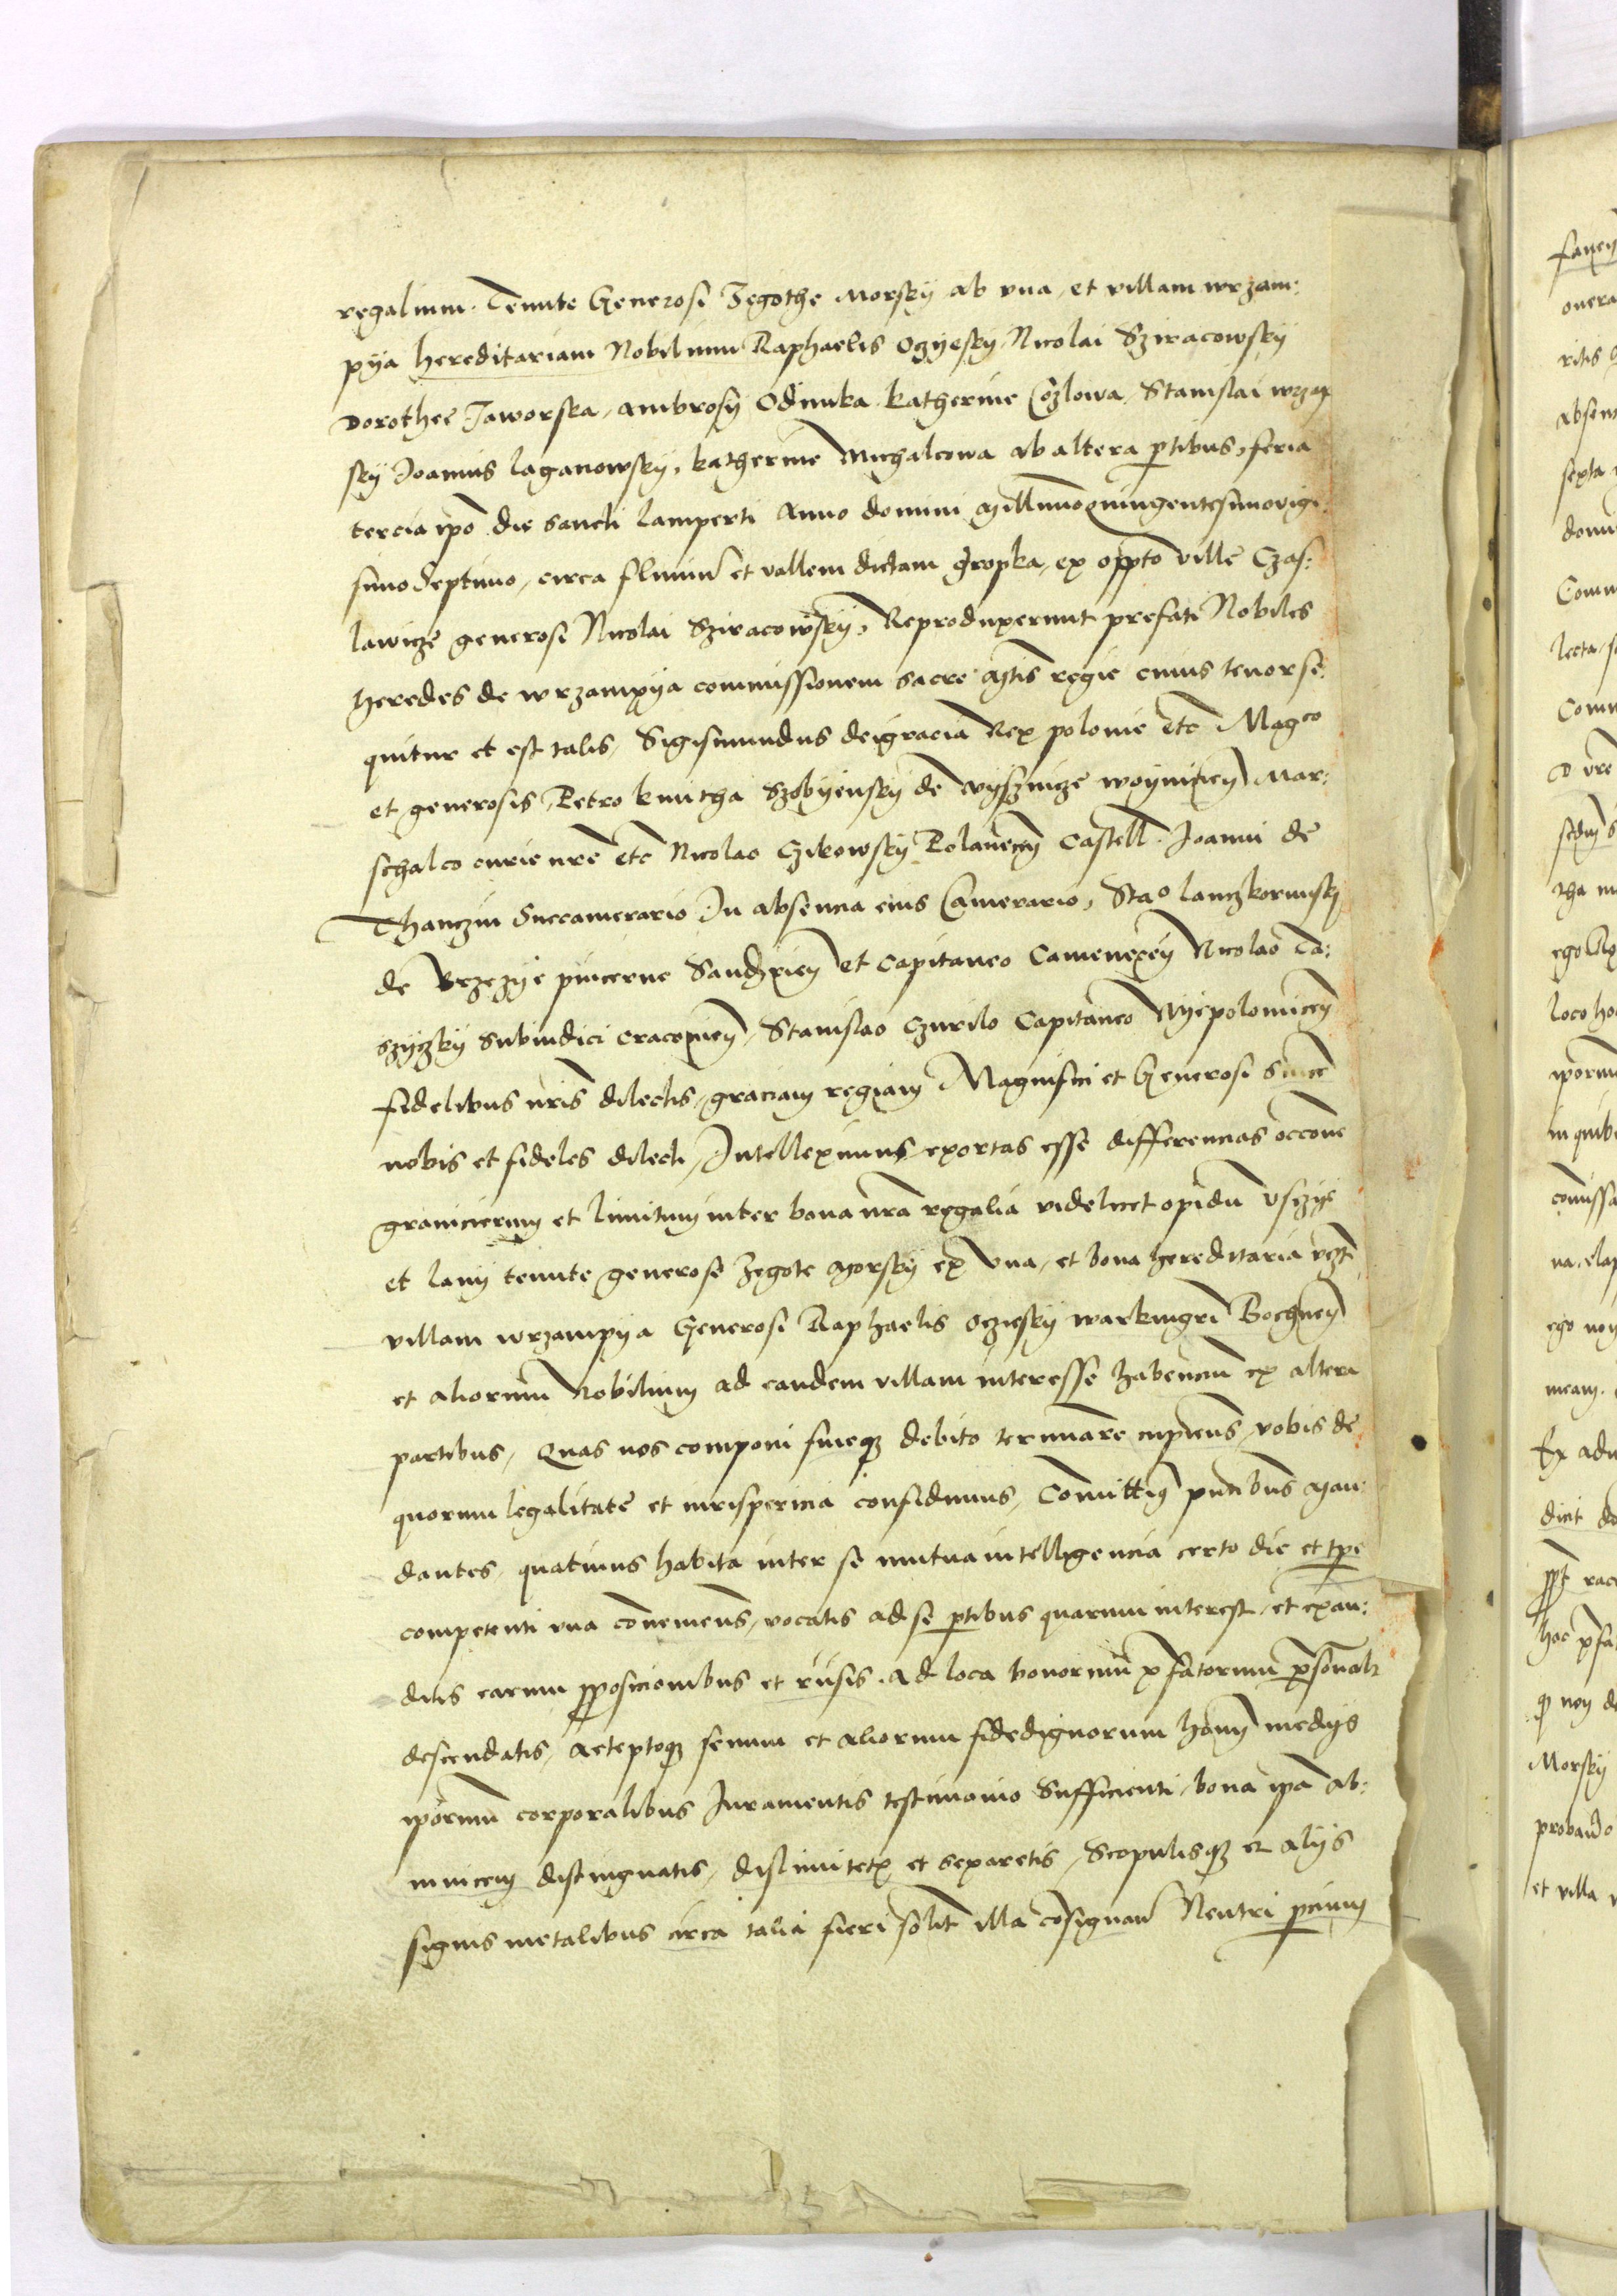 regalium. Tenute Generosi Zegothe Morsky ab vna, et villam wrzam:
pya hereditariam Nobilium Raphaelis Oczyesky Nicolai Sziracowsky
Dorothee Jaworska, ambrosy Odnuka katherine Cozlowa Stanislai wrzap
sky Joannis laganowsky, katherine Michalcowa ab altera ptibus, feria
tercia ipo die sancti lamperti Anno domini Millimo quingentesimo vige
simo Septimo, circa fluuiu et vallem dictam gropka, ex oppto ville Czas:
lawicze generosi Nicolai Sziracowsky, Reproduxerunt prefati Nobiles
heredes de wrzampya commissionem sacre Mtis regie cuius tenor se:
quitur et est talis, Sigismundus dei gracia Rex polonie etc Magco
et generosis Petro kmitha Szobyensky de Wysznicze woynicien Mar:
schalco curie nre etc Nicolao Czikowsky Polanecen Castell. Joanni de
Thanczin Succamerario In absencia eius Camerario, Stao lanczkorunsky
de Brzezye pincerne Sandxien et Capitaneo Camenecen Nicolao Ta:
szyczky Subiudici cracouien, Stanislao Czurilo Capitaneo Nyepolomicen
fidelibus nris dilectis, graciam regiam Magnifici et Generosi sincere
nobis et fideles dilecti, Intelleximus exortas esse differencias occone
granicierum et limitum inter bona nra regalia videlicet opidu Vszye
et lany tenute generose Zegote Morsky ex vna, et bona hereditaria vzt
villam wrzampya Generosi Raphaelis Oczesky warkmgri Bochnen
et aliorum Nobilium ad eandem villam interesse habenciu ex altera
partibus, Quas nos componi fineqz debito terminare cupientes vobis de
quorum legalitate et iurisperitia confidimus, Comittiq pntibus man:
dantes, quatinus habita inter se mutua intelligencia certo die et tpe
competenti vna conuenientes, vocatis ad se ptibus quarum interest, et exau:
ditis earum pposicionibus et rusis. ad loca bonorum pfatorum psonalr
descendatis, acceptoqz senum et aliorum fidedignorum hoim medys
ipsorum corporalibus Iuramentis testimonio Sufficienti, bona ipa ab:
inuicem distinguatis, dislimitetis et separetis, Scopulisqz et alys
signis metalibus circa talia fieri solit illa cosignan Neutri pcium